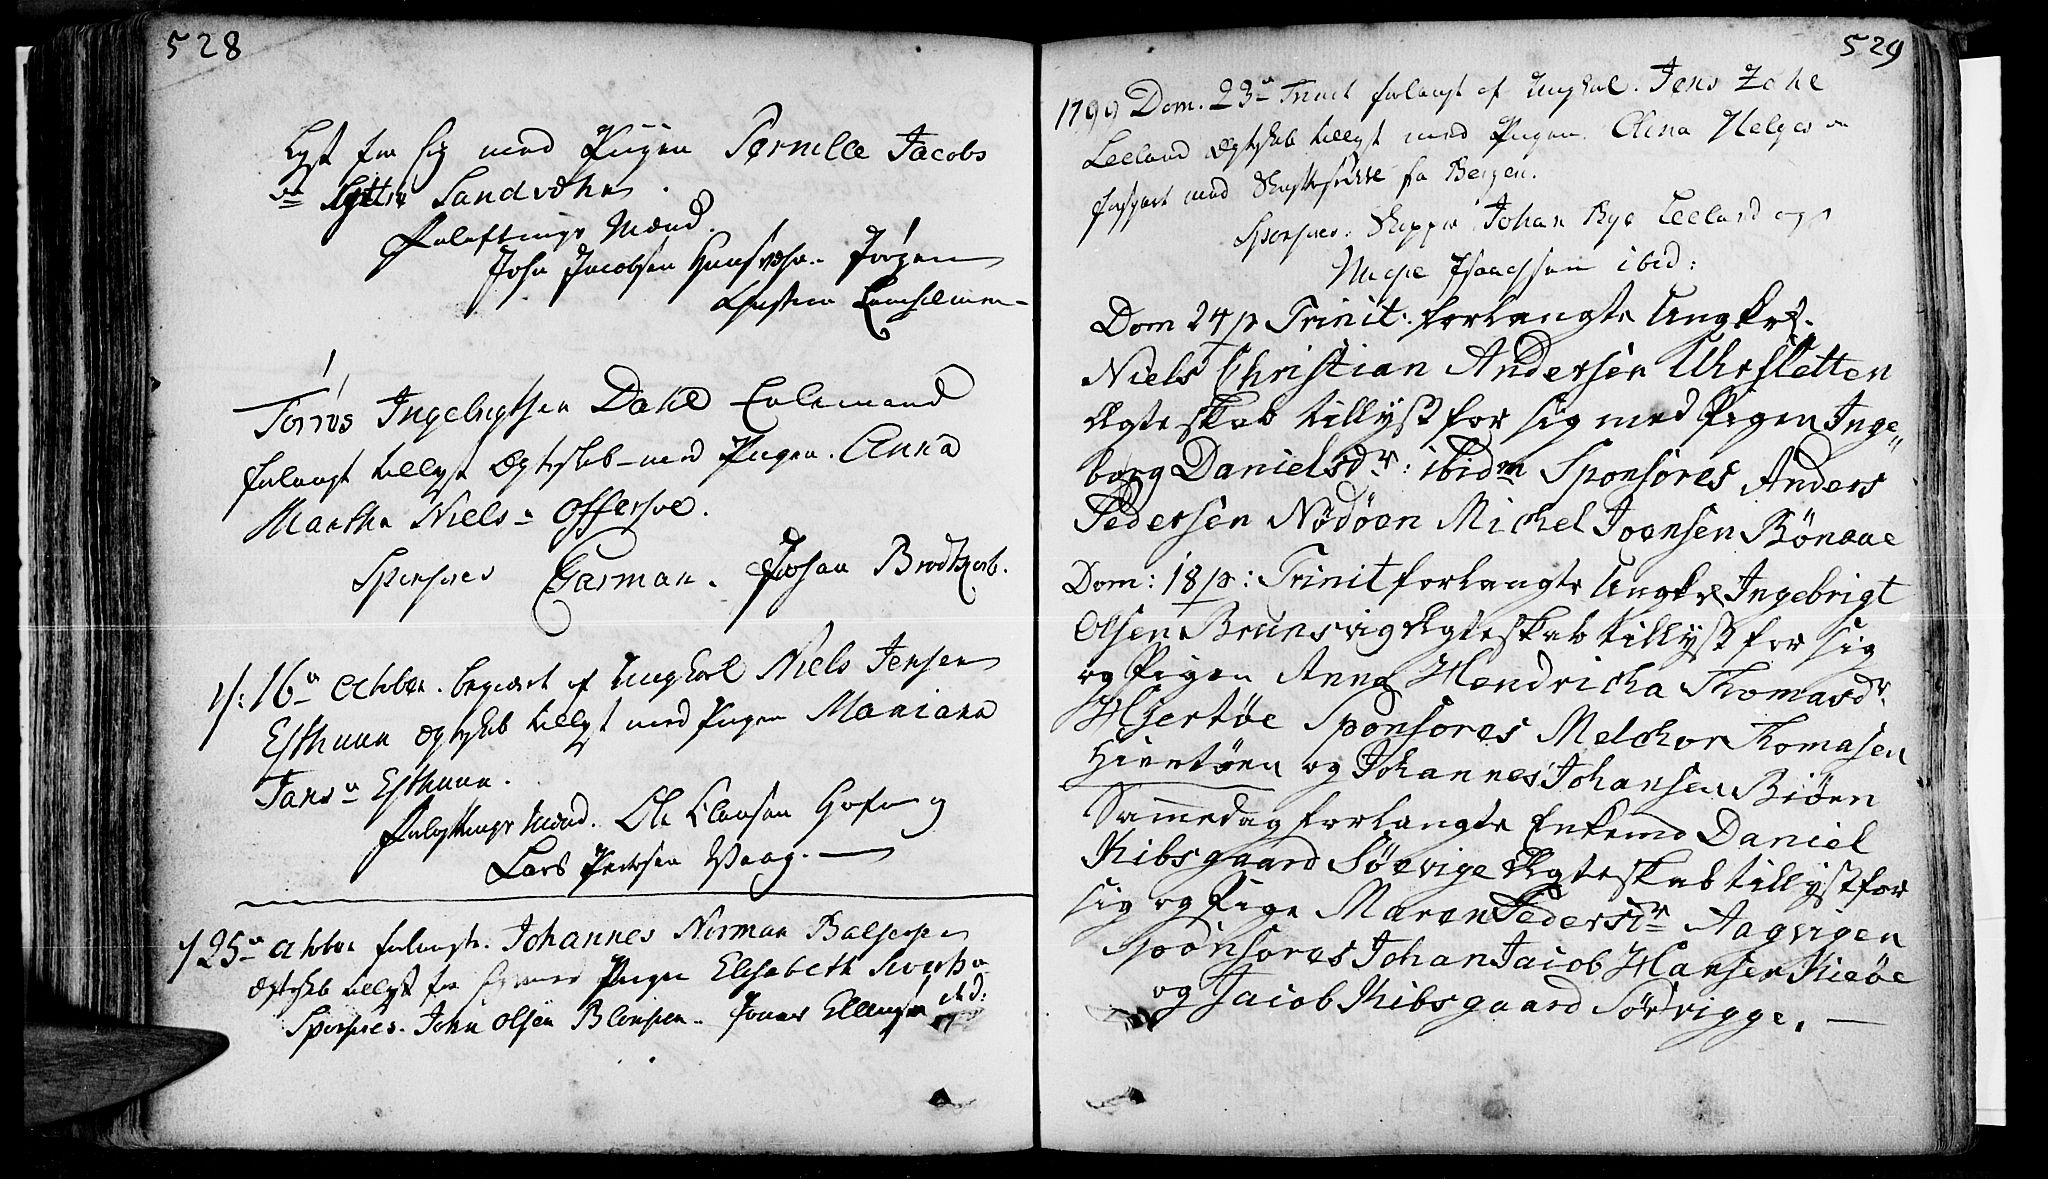 528
Lyst for sig med Pigen Pernille Jacobs
Sandvohn.
Forloftnings Mænd.
John Jacobsen Jörgen
Christian
Törres Ingebrigtsen Dahl Enkemand
forlangt tillyst Ægteskab med Pigen Anna
Martha Niels Offersöe.
Sponsores Garman. Johan Brodtkorb.
16 October begiært af Ungkarl Niels Jensen
Ægteskab tillyst med Pigen Mariana
Jans
Forlovtnings Mænd. Ole Clausen
Lars Pedersen Vaag.
25 October forlangte Johannes Norman
Ægteskab tillyst for sig med Pigen Elisabeth ibid:
Sponsores. John Olsen Jonas Ellingsen
529
1799 Dom. 23 Trinit forlangt af Ungkarl. Jens Zahl
Leeland Ægteskab tillyst med Pigen. Anna Helges
med fra Bergen.
Sponsores. Skipper Johan Rye Leeland og
Isaachsen ibid:
Dom 24 p Trinit: forlangte Ungkrl.
Niels Christian Andersen Uhrsletten
Ægteskab tillyst for sig med Pigen Inge„
borg Danielsdr: ibidm Sponsores Anders
Pedersen Nödöen Michel Joensen Bönaae
Dom: 18 p: Trinit forlangte Ungkrl Ingebrigt
Olsen Brunsvig Ægteskab tillyst for sig
og Pigen Anna Hendricha Thomasdr.
Hjertöe Sponsores Melchor Thomasen
Hiertöen og Johannes Johansen Biöen
Samedag forlangte Enkemd Daniel
Kibsgaard Söevige Ægteskab tillyst for
sig og Pige Maren Pedersdr Aagvigen
Sponsores Johan Jacob Hansen Kieöe
og Jacob Kibsgaard Sörvigge.